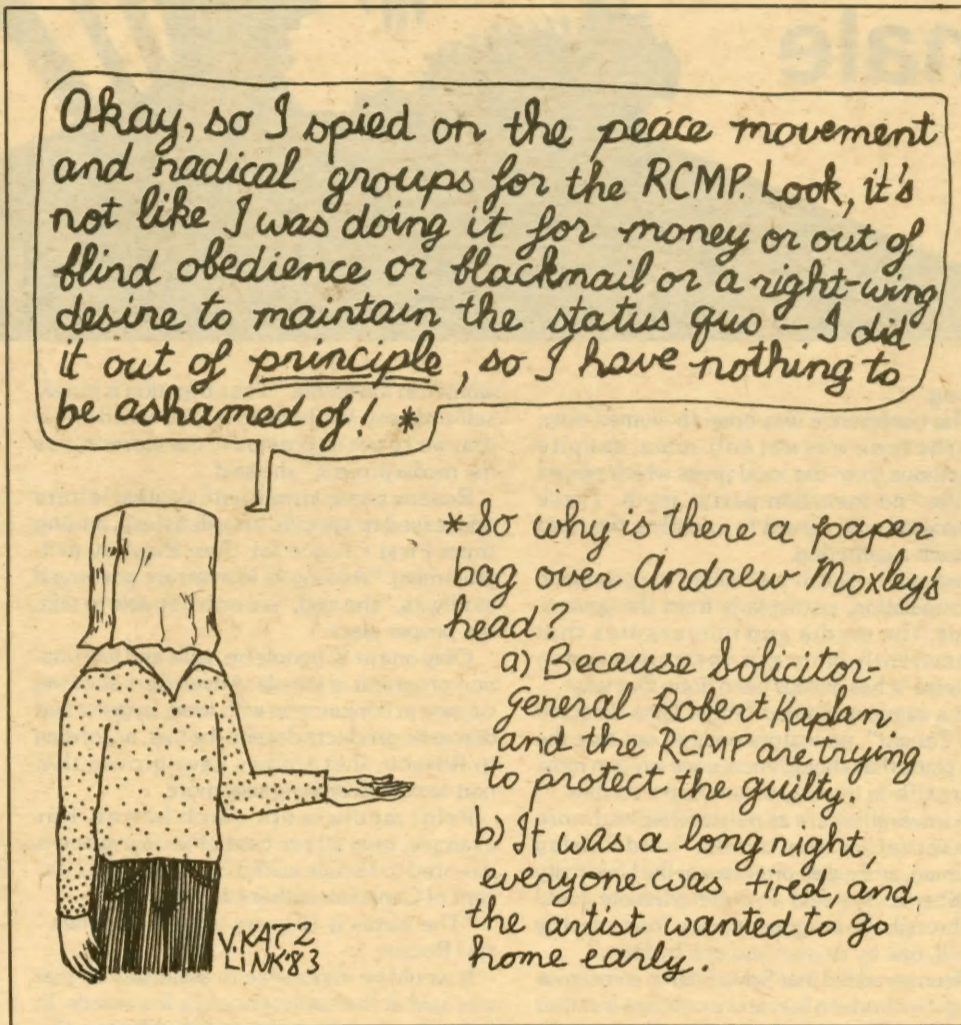 Okay, so I spied on the peace movement
and radical groups for the RCMP. Look, it's
not like I was doing it for money or out of
blind obedience or blackmail or a right-wing
desire to maintain the status quo — I did
it out of principle, so I have nothing to
be ashamed of! *
* So why is there a paper
bag over Andrew Moxley's
head?
a) Because Solicitor-
General Robert Kaplan
and the RCMP are trying
to protect the guilty.
b) It was a long night,
everyone was tired, and
the artist wanted to go
home early.
V. KATZ
LINK '83